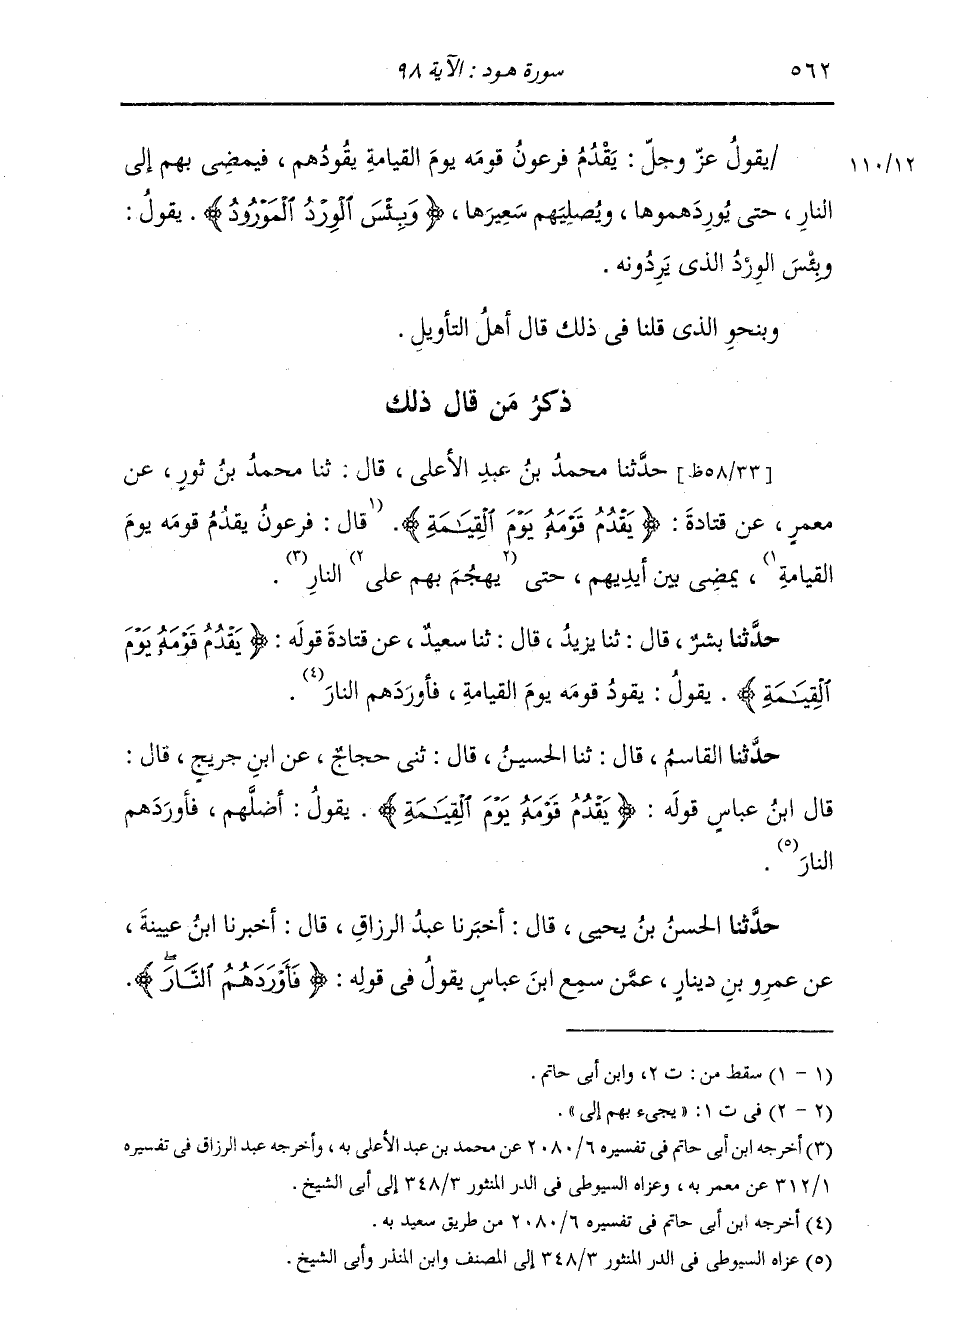 ٥٦٢ سورة هود : الآية ٩٨
١١٠/١٢ /يقولُ عزّ وجلّ : يَقْدُمُ فرعونُ قومَه يومَ القيامةِ يقُودُهم ، فيمضِى بهم إلى
النارِ ، حتى يُورِدَهموها ، ويُصلِيَهم سَعِيرَها ، ﴿ وَبِئْسَ ٱلْوِرْدُ ٱلْمَوْرُودُ ﴾ . يقولُ :
وبِئْسَ الوِرْدُ الذى يَرِدُونه .
وبنحوِ الذى قلنا فى ذلك قال أهلُ التأويلِ .
ذكرُ مَن قال ذلك
[٥٨/٣٣ظ] حدَّثنا محمدُ بنُ عبدِ الأعلى ، قال : ثنا محمدُ بنُ ثورٍ ، عن
معمرٍ ، عن قتادةَ : ﴿ يَقْدُمُ قَوْمَهُۥ يَوْمَ ٱلْقِيَـٰمَةِ ﴾. (١قال : فرعونُ يقدُمُ قومَه يومَ
القيامةِ١) ، يمضِى بين أيدِيهم ، حتى (٢يهجُمَ بهم على٢) النارِ(٣) .
حدَّثنا بشرٌ ، قال : ثنا يزيدُ ، قال : ثنا سعيدٌ ، عن قتادةَ قولَه : ﴿ يَقْدُمُ قَوْمَهُۥ يَوْمَ
ٱلْقِيَـٰمَةِ ﴾ . يقولُ : يقودُ قومَه يومَ القيامةِ ، فأورَدَهم النارَ(٤) .
حدَّثنا القاسمُ ، قال : ثنا الحسينُ ، قال : ثنى حجاجٌ ، عن ابنِ جريجٍ ، قال :
قال ابنُ عباسٍ قولَه : ﴿ يَقْدُمُ قَوْمَهُۥ يَوْمَ ٱلْقِيَـٰمَةِ ﴾ . يقولُ : أضلَّهم ، فأورَدَهم
النارَ(٥) .
حدَّثنا الحسنُ بنُ يحيى ، قال : أخبَرنا عبدُ الرزاقِ ، قال : أخبرنا ابنُ عيينةَ ،
عن عمرِو بنِ دينارٍ ، عمَّن سمِع ابنَ عباسٍ يقولُ فى قولِه : ﴿ فَأَوْرَدَهُمُ ٱلنَّارَۖ ﴾.
(١ - ١) سقط من : ت ٢، وابن أبى حاتم .
(٢ - ٢) فى ت ١: « يجىء بهم إلى» .
(٣) أخرجه ابن أبى حاتم فى تفسيره ٢٠٨٠/٦ عن محمد بن عبد الأعلى به ، وأخرجه عبد الرزاق فى تفسيره
٣١٢/١ عن معمر به ، وعزاه السيوطى فى الدر المنثور ٣٤٨/٣ إلى أبى الشيخ .
(٤) أخرجه ابن أبى حاتم فى تفسيره ٢٠٨٠/٦ من طريق سعيد به .
(٥) عزاه السيوطى فى الدر المنثور ٣٤٨/٣ إلى المصنف وابن المنذر وأبى الشيخ .